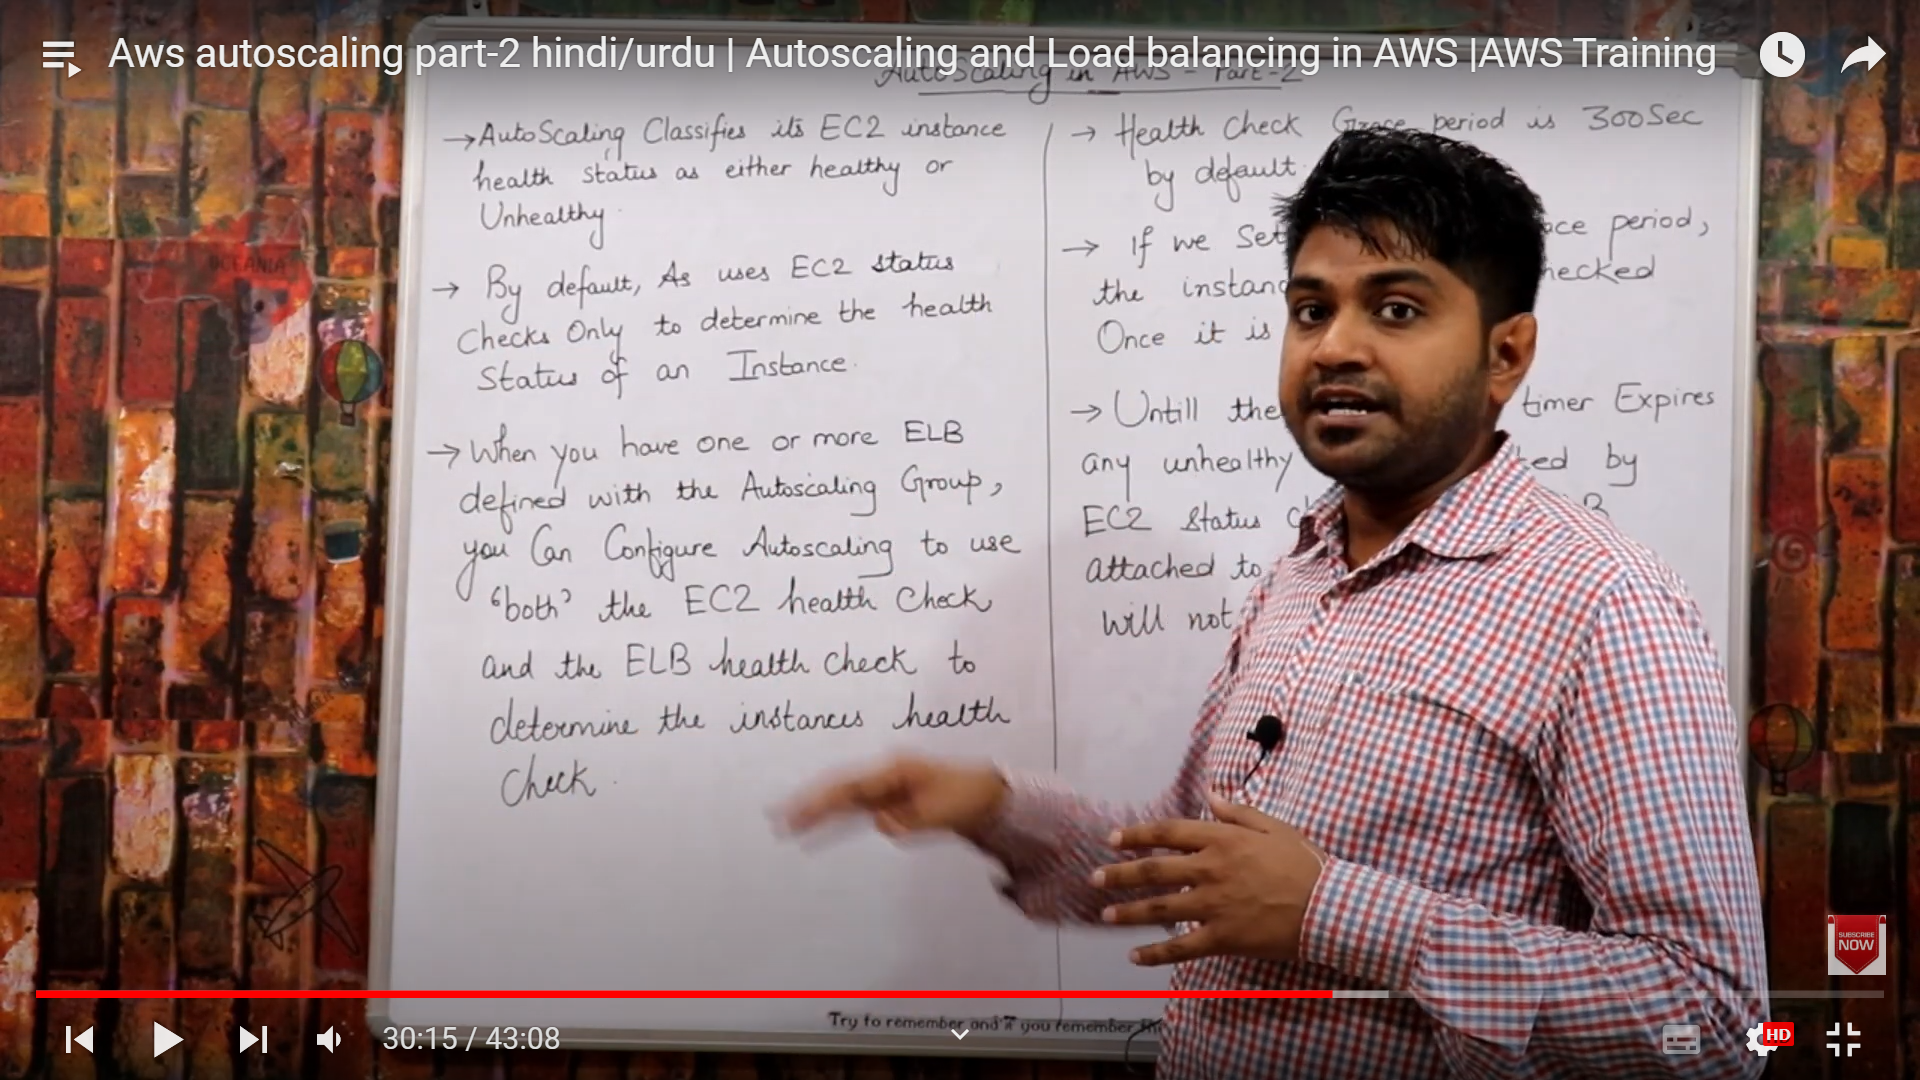 Aws autoscaling part-2 hindi/urdu | Autoscaling and Load balancing in AWS |AWS Training
AutoScaling in AWS - Part-2
→ AutoScaling Classifies its EC2 instance
health status as either healthy or
Unhealthy.
→ By default, As uses EC2 status
Checks Only to determine the health
Status of an Instance.
→ When you have one or more ELB
defined with the Autoscaling Group,
you Can Configure Autoscaling to use
'both' the EC2 health Check
and the ELB health check to
determine the instances health
Check.
→ Health Check Grace period is 300Sec
by default.
→ If we Set period,
the
Once it is
→ Untill the timer Expires
any unhealthy by
EC2 Status
attached to
will not
OCEANIA
SUBSCRIBE
NOW
Try to remember and if you remember
30:15 / 43:08
HD